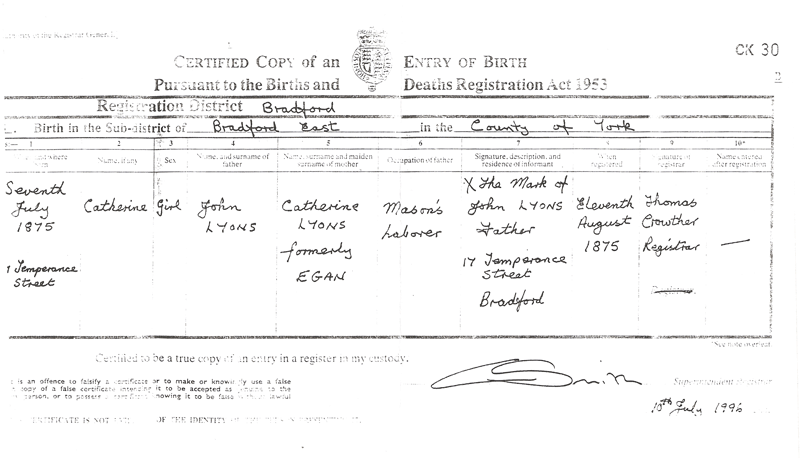 CERTIFIED COPY OF AN ENTRY OF BIRTH
CK 30
Pursuant to the Births and Deaths Registration Act 1953
Registration District Bradford
Birth in the Sub-district of Bradford East in the County of York
1 2 3 4 5 6 7 8 9 10*
Name, if any
Sex
Name, and surname of father
Name, surname and maiden surname of mother
Occupation of father
Signature, description, and residence of informant
When registered
Signature of registrar
Name entered after registration
Seventh
July
1875
1 Temperance
Street
Catherine
Girl
John
LYONS
Catherine
LYONS
formerly
EGAN
Mason's
Laborer
X The Mark of
John LYONS
Father
17 Temperance
Street
Bradford
Eleventh
August
1875
Thomas
Crowther
Registrar
—
*See note overleaf
Certified to be a true copy of an entry in a register in my custody.
is an offence to falsify a certificate or to make or knowingly use a false
copy of a false certificate intending it to be accepted as genuine to the
person, or to possess a certificate knowing it to be false without lawful
CERTIFICATE IS NOT OF THE IDENTITY OF THE
Smith
Superintendent Registrar
10th July 1996